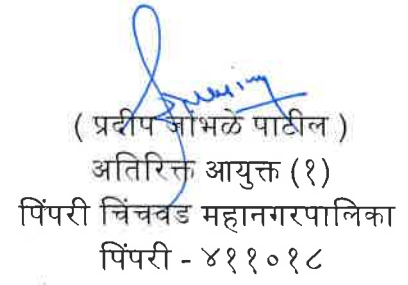 ( प्रदीप जांभळे पाटील )
अतिरिक्त आयुक्त (१)
पिंपरी चिंचवड महानगरपालिका
पिंपरी - ४११०१८